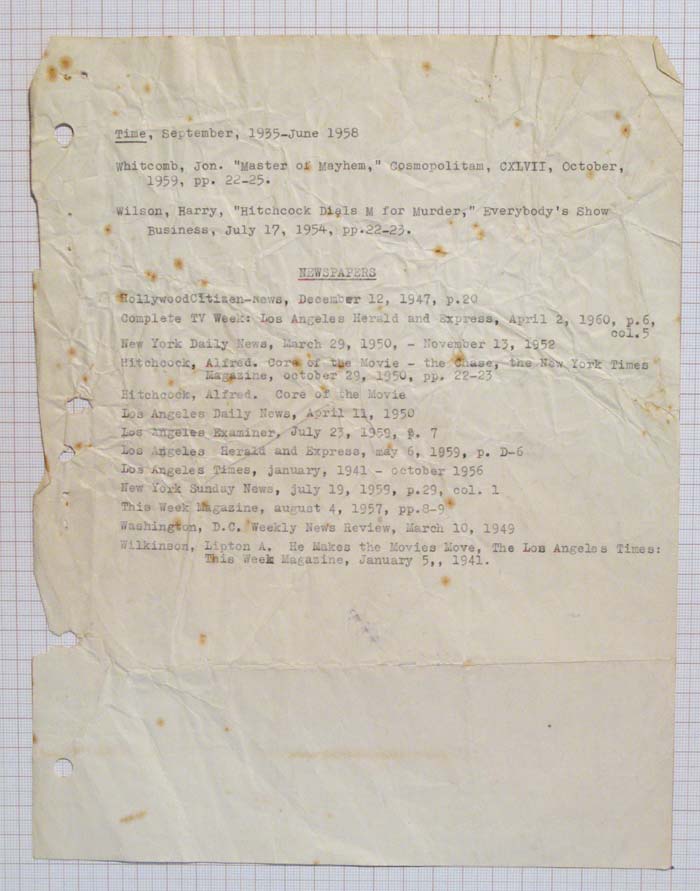 Time, September, 1935-June 1958
Whitcomb, Jon. "Master of Mayhem," Cosmopolitam, CXLVII, October,
1959, pp. 22-25.
Wilson, Harry, "Hitchcock Dials M for Murder," Everybody's Show
Business, July 17, 1954, pp.22-23.
NEWSPAPERS
HollywoodCitizen-News, December 12, 1947, p.20
Complete TV Week: Los Angeles Herald and Express, April 2, 1960, p.6,
col.5
New York Daily News, March 29, 1950, - November 13, 1952
Hitchcock, Alfred. Core of the Movie - the Chase, the New York Times
Magazine, october 29, 1950, pp. 22-23
Hitchcock, Alfred. Core of the Movie
Los Angeles Daily News, April 11, 1950
Los Angeles Examiner, July 23, 1959, p. 7
Los Angeles Herald and Express, may 6, 1959, p. D-6
Los Angeles Times, january, 1941 - october 1956
New York Sunday News, july 19, 1959, p.29, col. 1
This Week Magazine, august 4, 1957, pp.8-9
Washington, D.C. Weekly News Review, March 10, 1949
Wilkinson, Lipton A. He Makes the Movies Move, The Los Angeles Times:
This Week Magazine, January 5,, 1941.